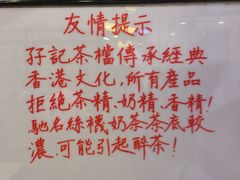 友情提示
孖記茶檔傳承經典
香港文化,所有産品
拒絶茶精、奶精、香精!
馳名絲襪奶茶茶底較
濃.可能引起醉茶!